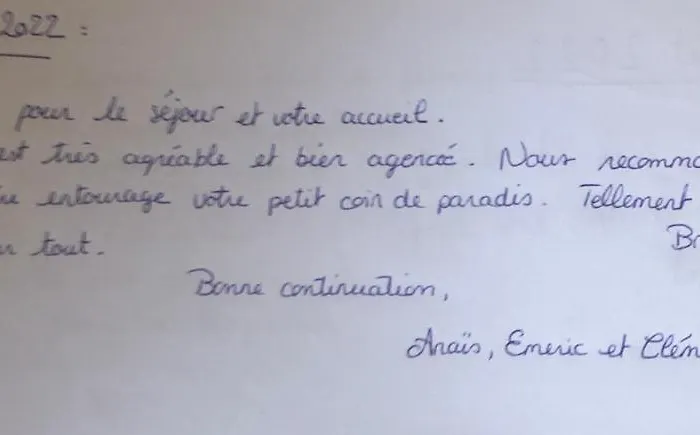 2022 :
pour le séjour et votre accueil.
est très agréable et bien agencé. Nous recomm
entourage votre petit coin de paradis. Tellement
tout.
Bonne continuation,
Anaïs, Emeric et Clém